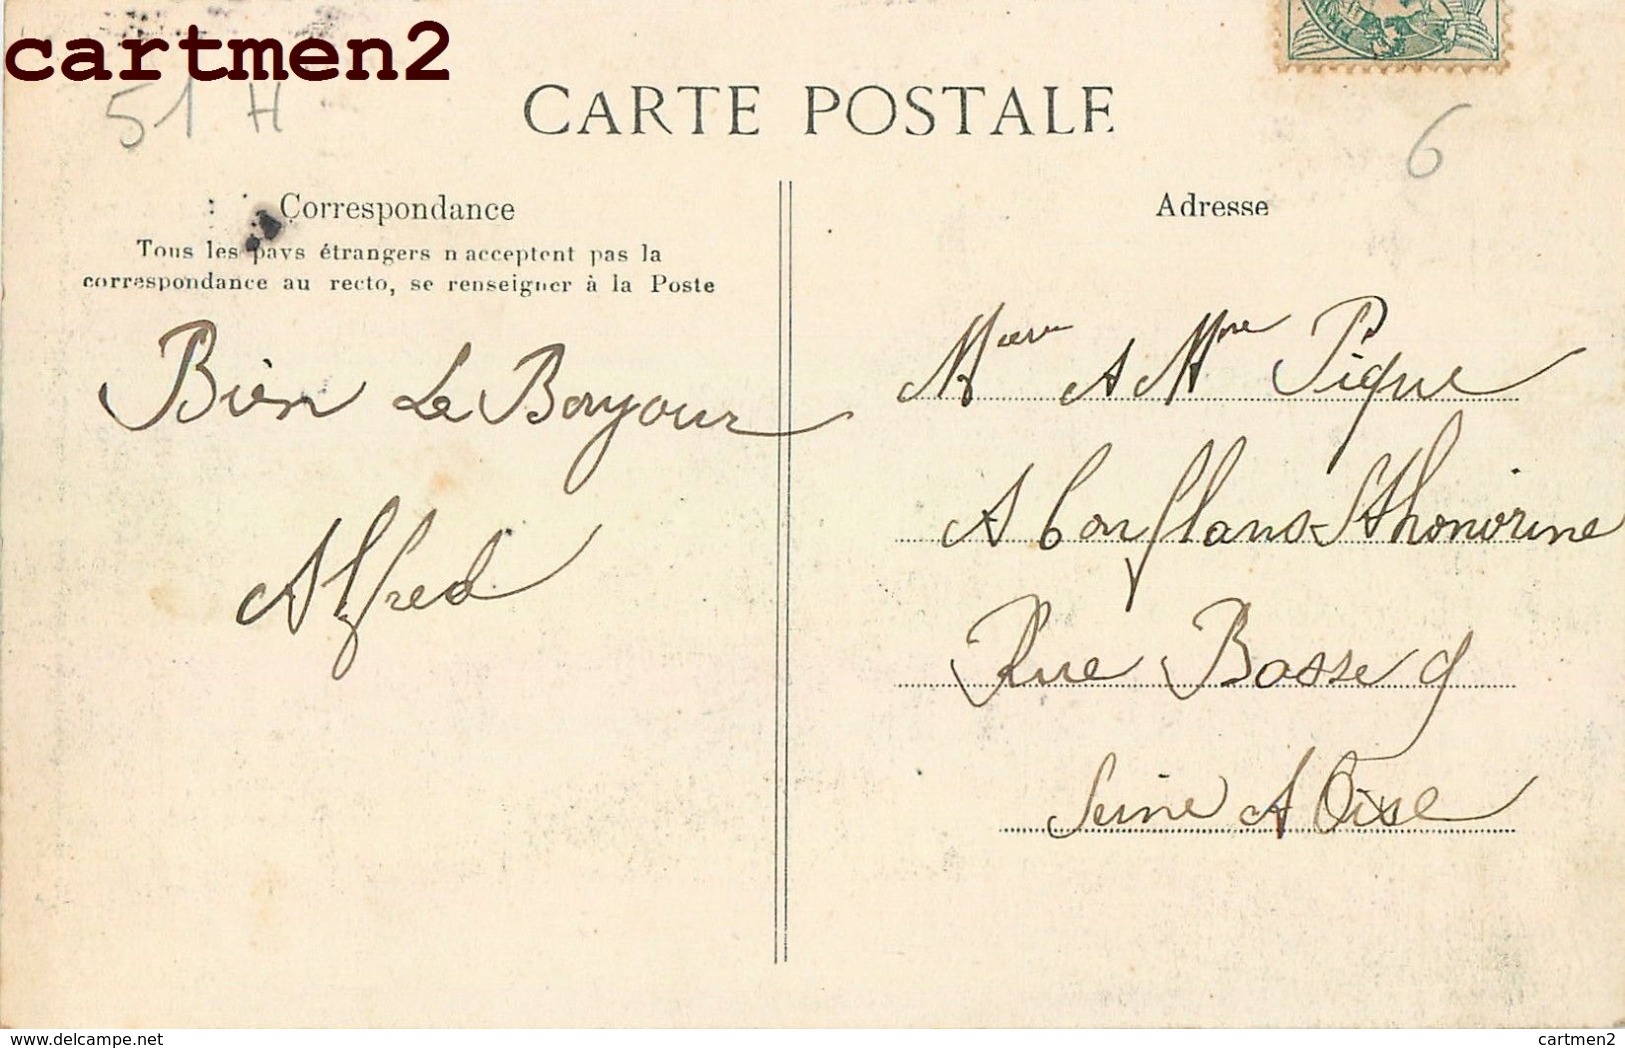 cartmen2
51 H
CARTE POSTALE
6
Correspondance
Tous les pays étrangers n acceptent pas la
correspondance au recto, se renseigner à la Poste
Bien Le Bonjour
Alfred
Adresse
A Mme Pique
A Conflans St honorine
Rue Basse 9
Seine A Oise
www.delcampe.net
cartmen2